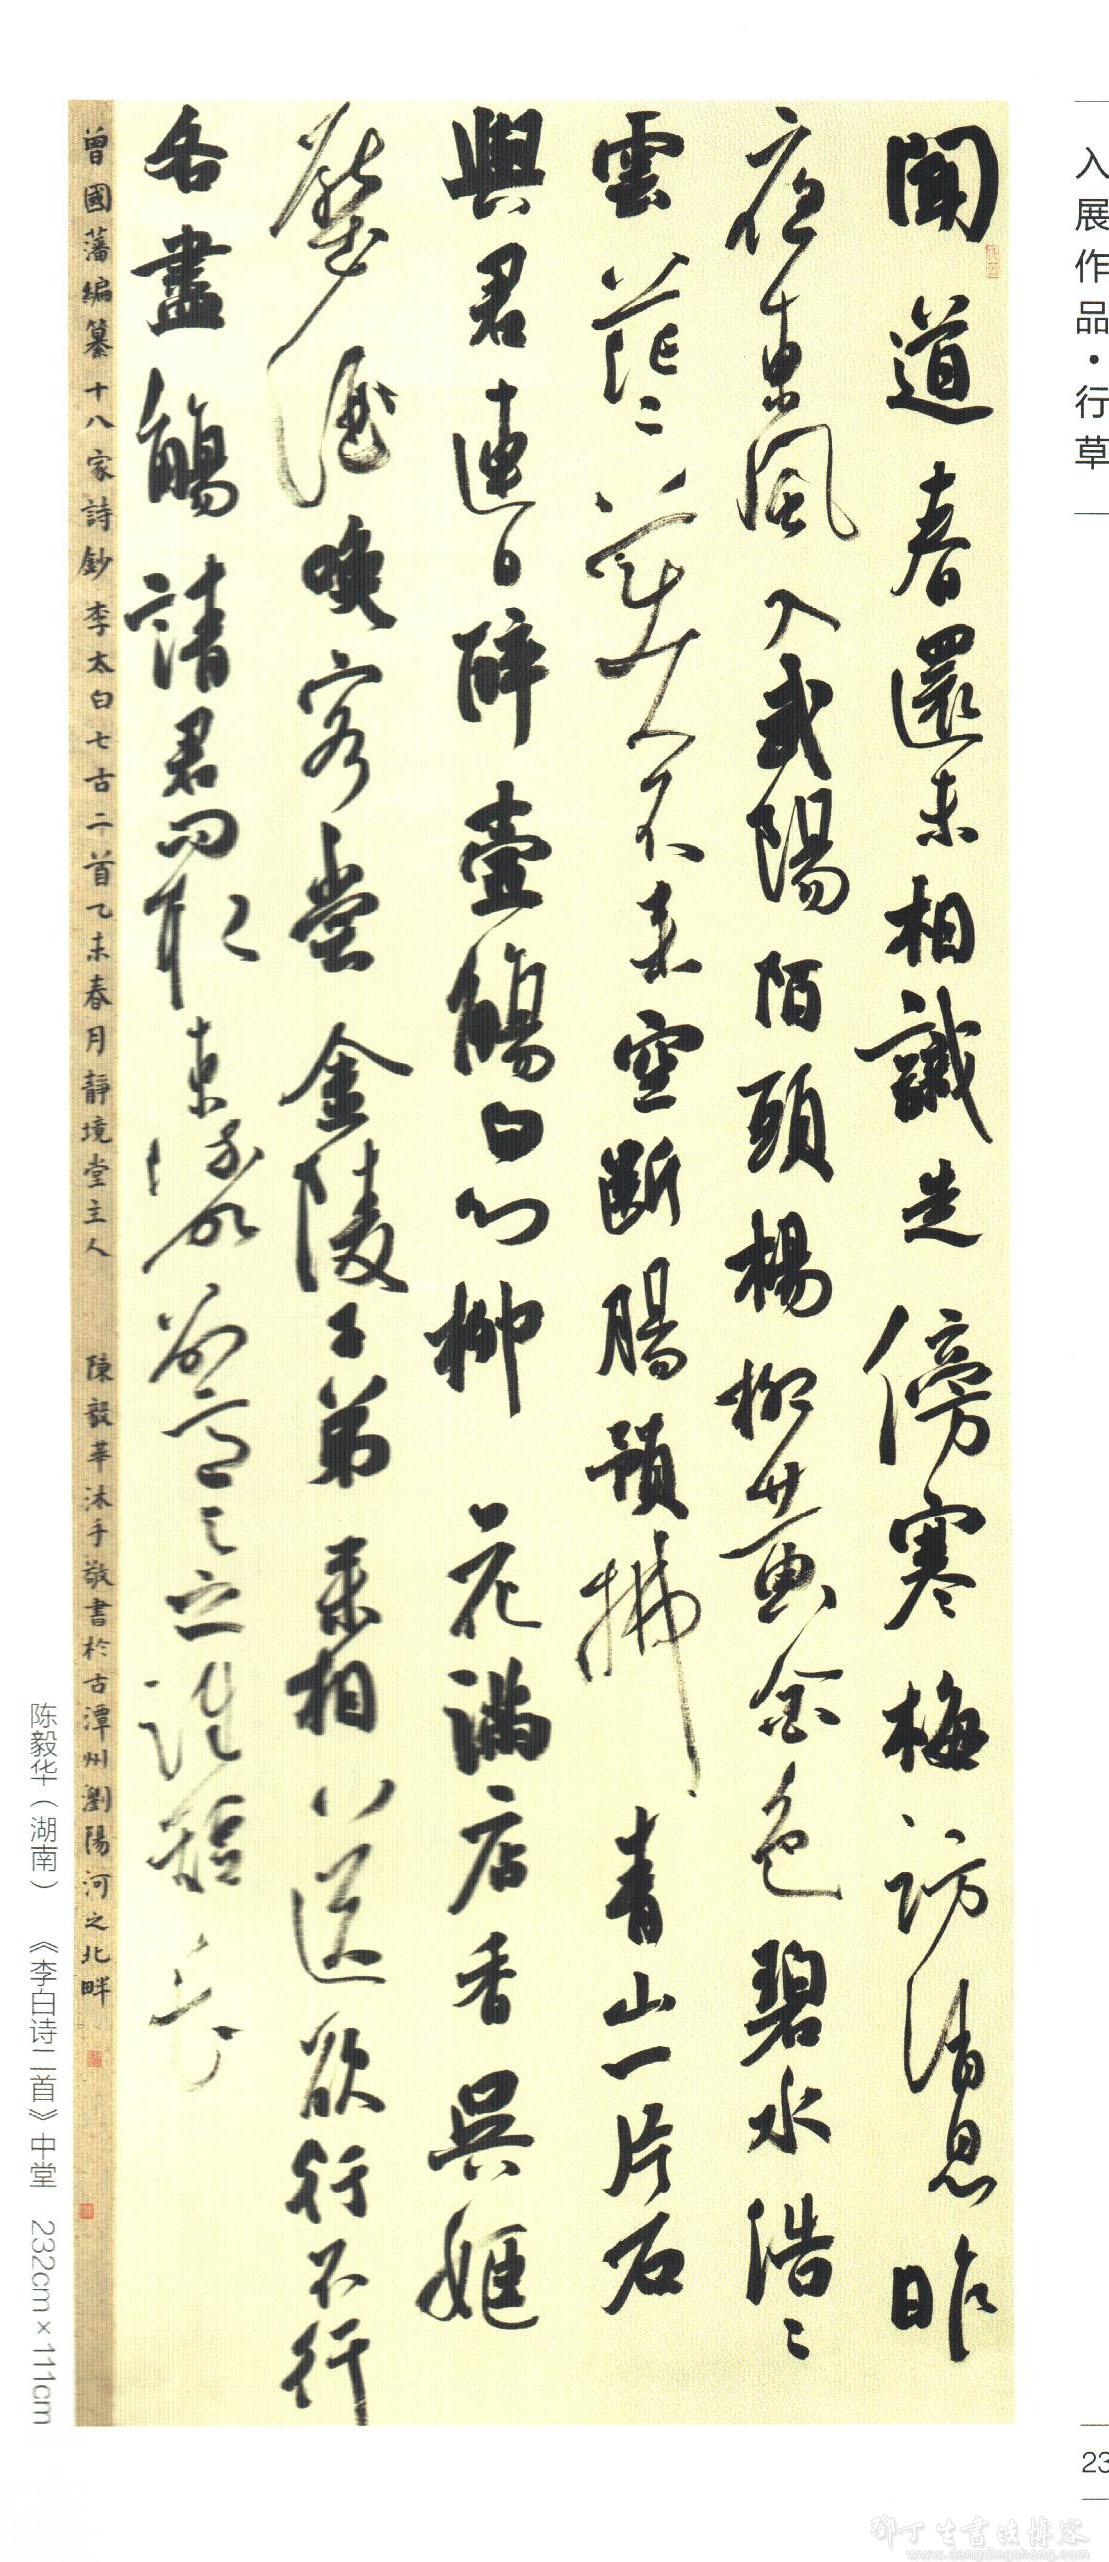 入展作品·行草
聞道春還未相識走傍寒梅訪消息昨
夜東風入武陽陌頭楊柳黄金色碧水浩〻
雲茫〻美人不来空斷腸預拂青山一片石
與君連日醉壺觴白門柳花滿店香吳姬
壓酒喚客嘗金陵子弟来相送欲行不行
各盡觴請君問取東流水別意与之誰短長
曾國藩編纂十八家詩鈔李太白七古二首乙未春月靜境堂主人 陳毅華沐手敬書於古潭州瀏陽河之北畔
陈毅华（湖南） 《李白诗二首》中堂 232cm×111cm
23
鄧丁生書法博客
www.dengdingsheng.com